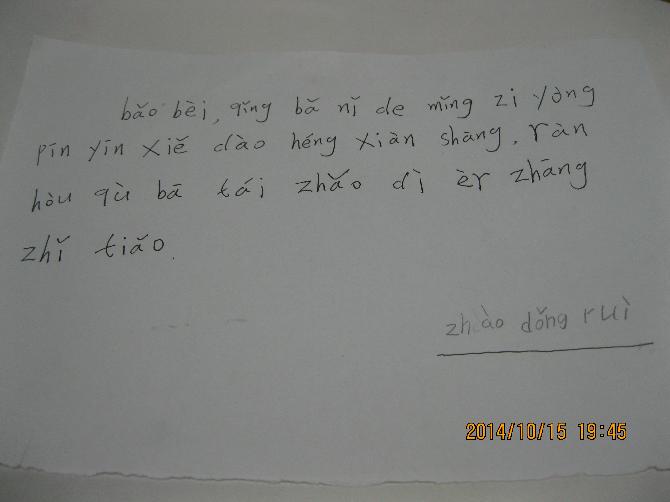 bǎo bèi, qǐng bǎ nǐ de mǐng zi yòng
pīn yīn xiě dào héng xiàn shāng. ràn
hòu qù bā tái zhǎo dì èr zhāng
zhǐ tiǎo.
zhào dǒng ruì
2014/10/15 19:45